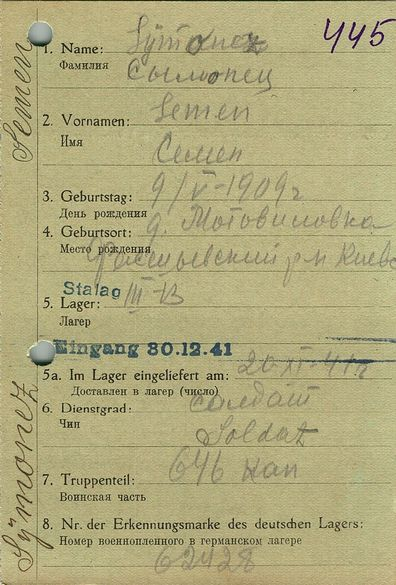 445
1. Name: Symonez
Фамилия
Сымонец
2. Vornamen: Semen
Имя
Семен
3. Geburtstag: 9/V-1909г
День рождения
4. Geburtsort: д. Мотовиловка
Место рождения
р-н Киевс
Stalag III-B
5. Lager:
Лагерь
Eingang 30.12.41
5a. Im Lager eingeliefert am: 20-XI-41г
Доставлен в лагер (число)
6. Dienstgrad: солдат
Чин
Soldat
7. Truppenteil: 646
Воинская часть
8. Nr. der Erkennungsmarke des deutschen Lagers:
Номер военнопленного в германском лагере
62428
Semen
Sÿmonez